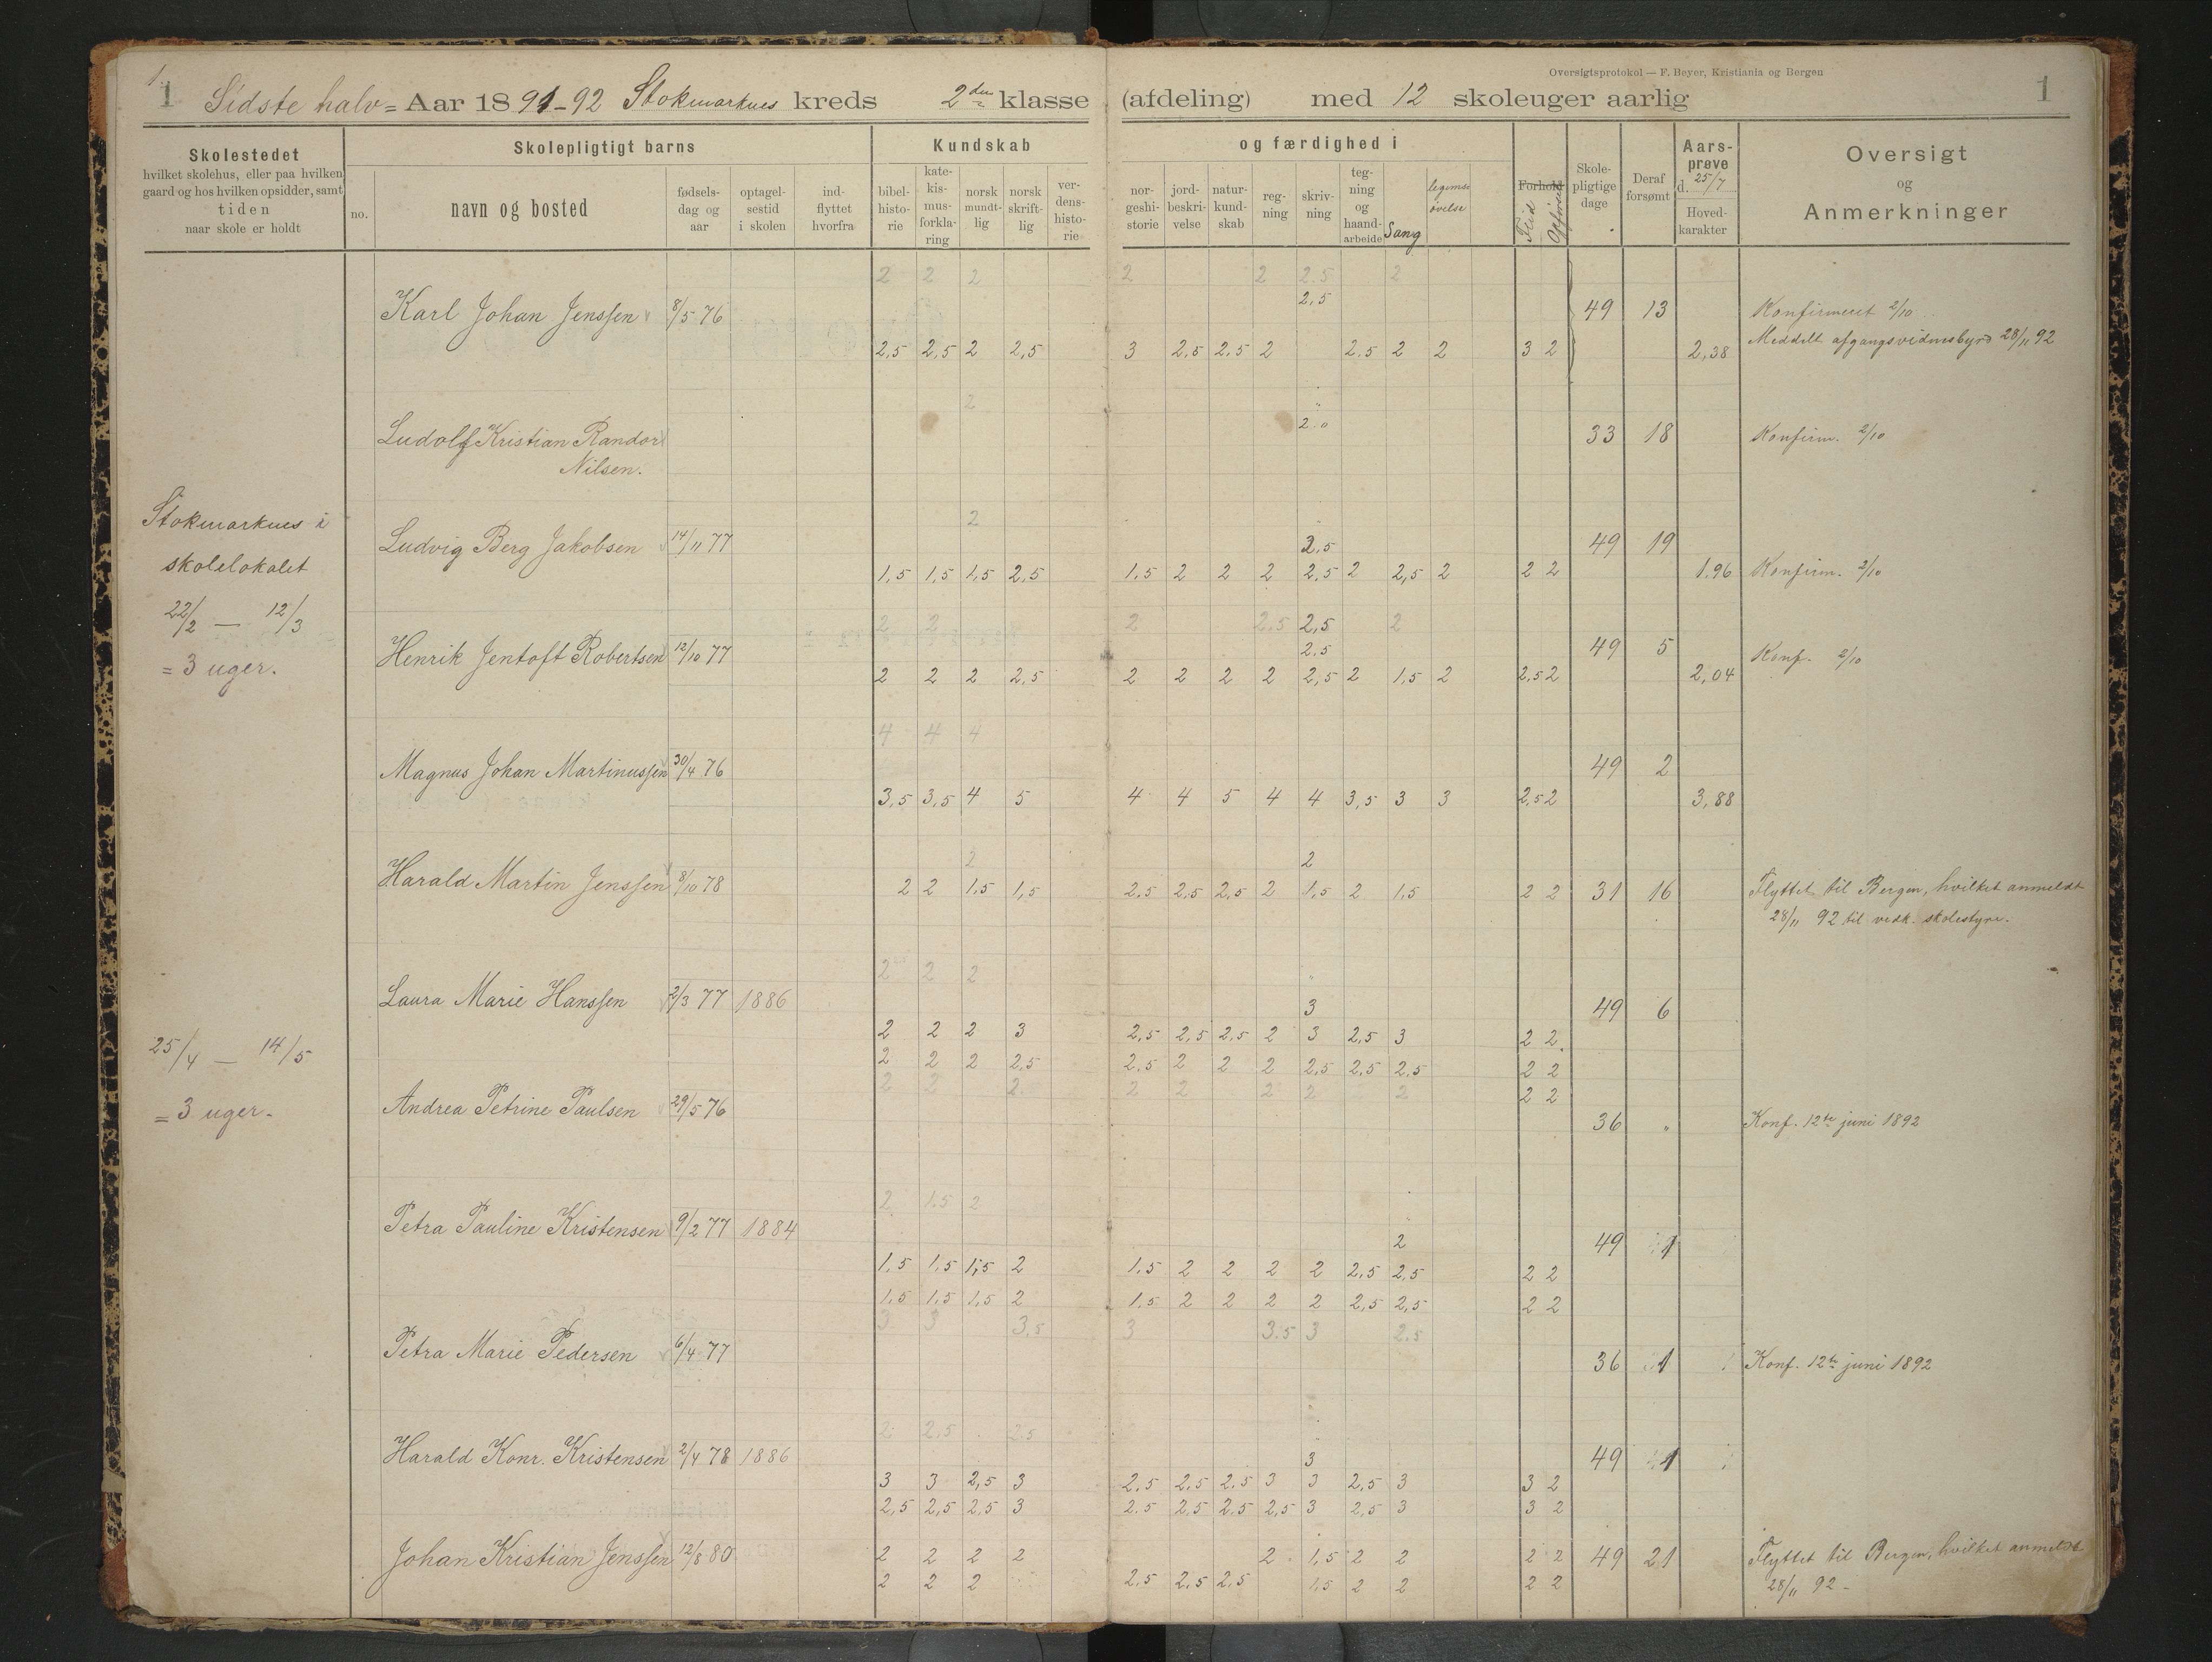 Oversigtsprotokol — F. Beyer, Kristiania og Bergen
1 Sidste halv= Aar 1891-92 Stokmarknes kreds 2den klasse (afdeling) med 12 skoleuger aarlig 1
Skolestedet
hvilket skolehus, eller paa hvilken
gaard og hos hvilken opsidder, samt
tiden
naar skole er holdt
Skolepligtigt barns
no.
navn og bosted
fødsels-
dag og
aar
optagel-
sestid
i skolen
ind-
flyttet
hvorfra
Kundskab
bibel-
histo-
rie
kate-
kis-
mus-
forkla-
ring
norsk
mundt-
lig
norsk
skrift-
lig
ver-
dens-
histo-
rie
og færdighed i
nor-
geshi-
storie
jord-
beskri-
velse
natur-
kund-
skab
reg-
ning
skriv-
ning
teg-
ning
og
haand-
arbeide
Sang
legems
øvelse
Forhold
Flid
Opførsel
Skole-
pligtige
dage
Deraf
forsømt
Aars-
prøve
d. 25/7
Hoved-
karakter
Oversigt
og
Anmerkninger
Stokmarknes i
skolelokalet
22/2 — 12/3
= 3 uger.
25/4 — 14/5
= 3 uger.
2 2 2 2 2 2.5 2
2,5
Karl Johan Jenssen 8/5 76 49 13 Konfirmeret 2/10
2,5 2,5 2 2,5 3 2.5 2.5 2 2.5 2 2 3 2 2,38 Meddelt afgangsvidnesbyrd 28/11 92
2
Ludolf Kristian Randor 2.0 33 18 Konfirm. 2/10
Nilsen.
2
Ludvig Berg Jakobsen 14/11 77 2,5 49 19
1,5 1,5 1,5 2,5 1.5 2 2 2 2,5 2 2,5 2 2 2 1.96 Konfirm. 2/10
2 2 2 2.5 2,5 2
Henrik Jentoft Robertsen 12/10 77 2.5 49 5 Konf. 2/10
2 2 2 2,5 2 2 2 2 2,5 2 1,5 2 2,5 2 2,04
4 4 4
Magnus Johan Martinussen 30/4 76 49 2
3,5 3,5 4 5 4 4 5 4 4 3,5 3 3 2,5 2 3,88
2 2
Harald Martin Jenssen 8/10 78 2 2 1,5 1,5 2.5 2,5 2,5 2 1,5 2 1,5 2 2 31 16 Flyttet til Bergen, hvilket anmeldt
28/11 92 til vedk. skolestyre.
2 2 2
Laura Marie Hanssen 2/3 77 1886 3 49 6
2 2 2 3 2,5 2,5 2,5 2 3 2,5 3 2 2
2 2 2 2,5 2.5 2 2 2 2,5 2,5 2,5 2 2
2 2 2 2 2 2 2 2 2 2
Andrea Petrine Paulsen 29/5 76 36 " Konf. 12te juni 1892
2 1.5 2
Petra Pauline Kristensen 9/2 77 1884 2 49 1
1,5 1,5 1,5 2 1.5 2 2 2 2 2,5 2,5 2 2
1,5 1,5 1,5 2 1.5 2 2 2 2 2,5 2,5 2 2
3 3 3,5 3 3.5 3 2.5
Petra Marie Pedersen 6/4 77 36 1 Konf. 12te juni 1892
2 2.5 2.5
Harald Konr. Kristensen 2/4 78 1886 3 49 1
3 3 2,5 3 2.5 2.5 2.5 3 3 2,5 3 3 2
2,5 2,5 2,5 3 2.5 2.5 2.5 2,5 3 2,5 3 3 2
Johan Kristian Jenssen 12/8 80 2 2 2 2 2 1,5 2 2 2 2 49 21 Flyttet til Bergen, hvilket anmeldt
2 2 2 2.5 2,5 2,5 1,5 2 2 2 2 28/11 92 -